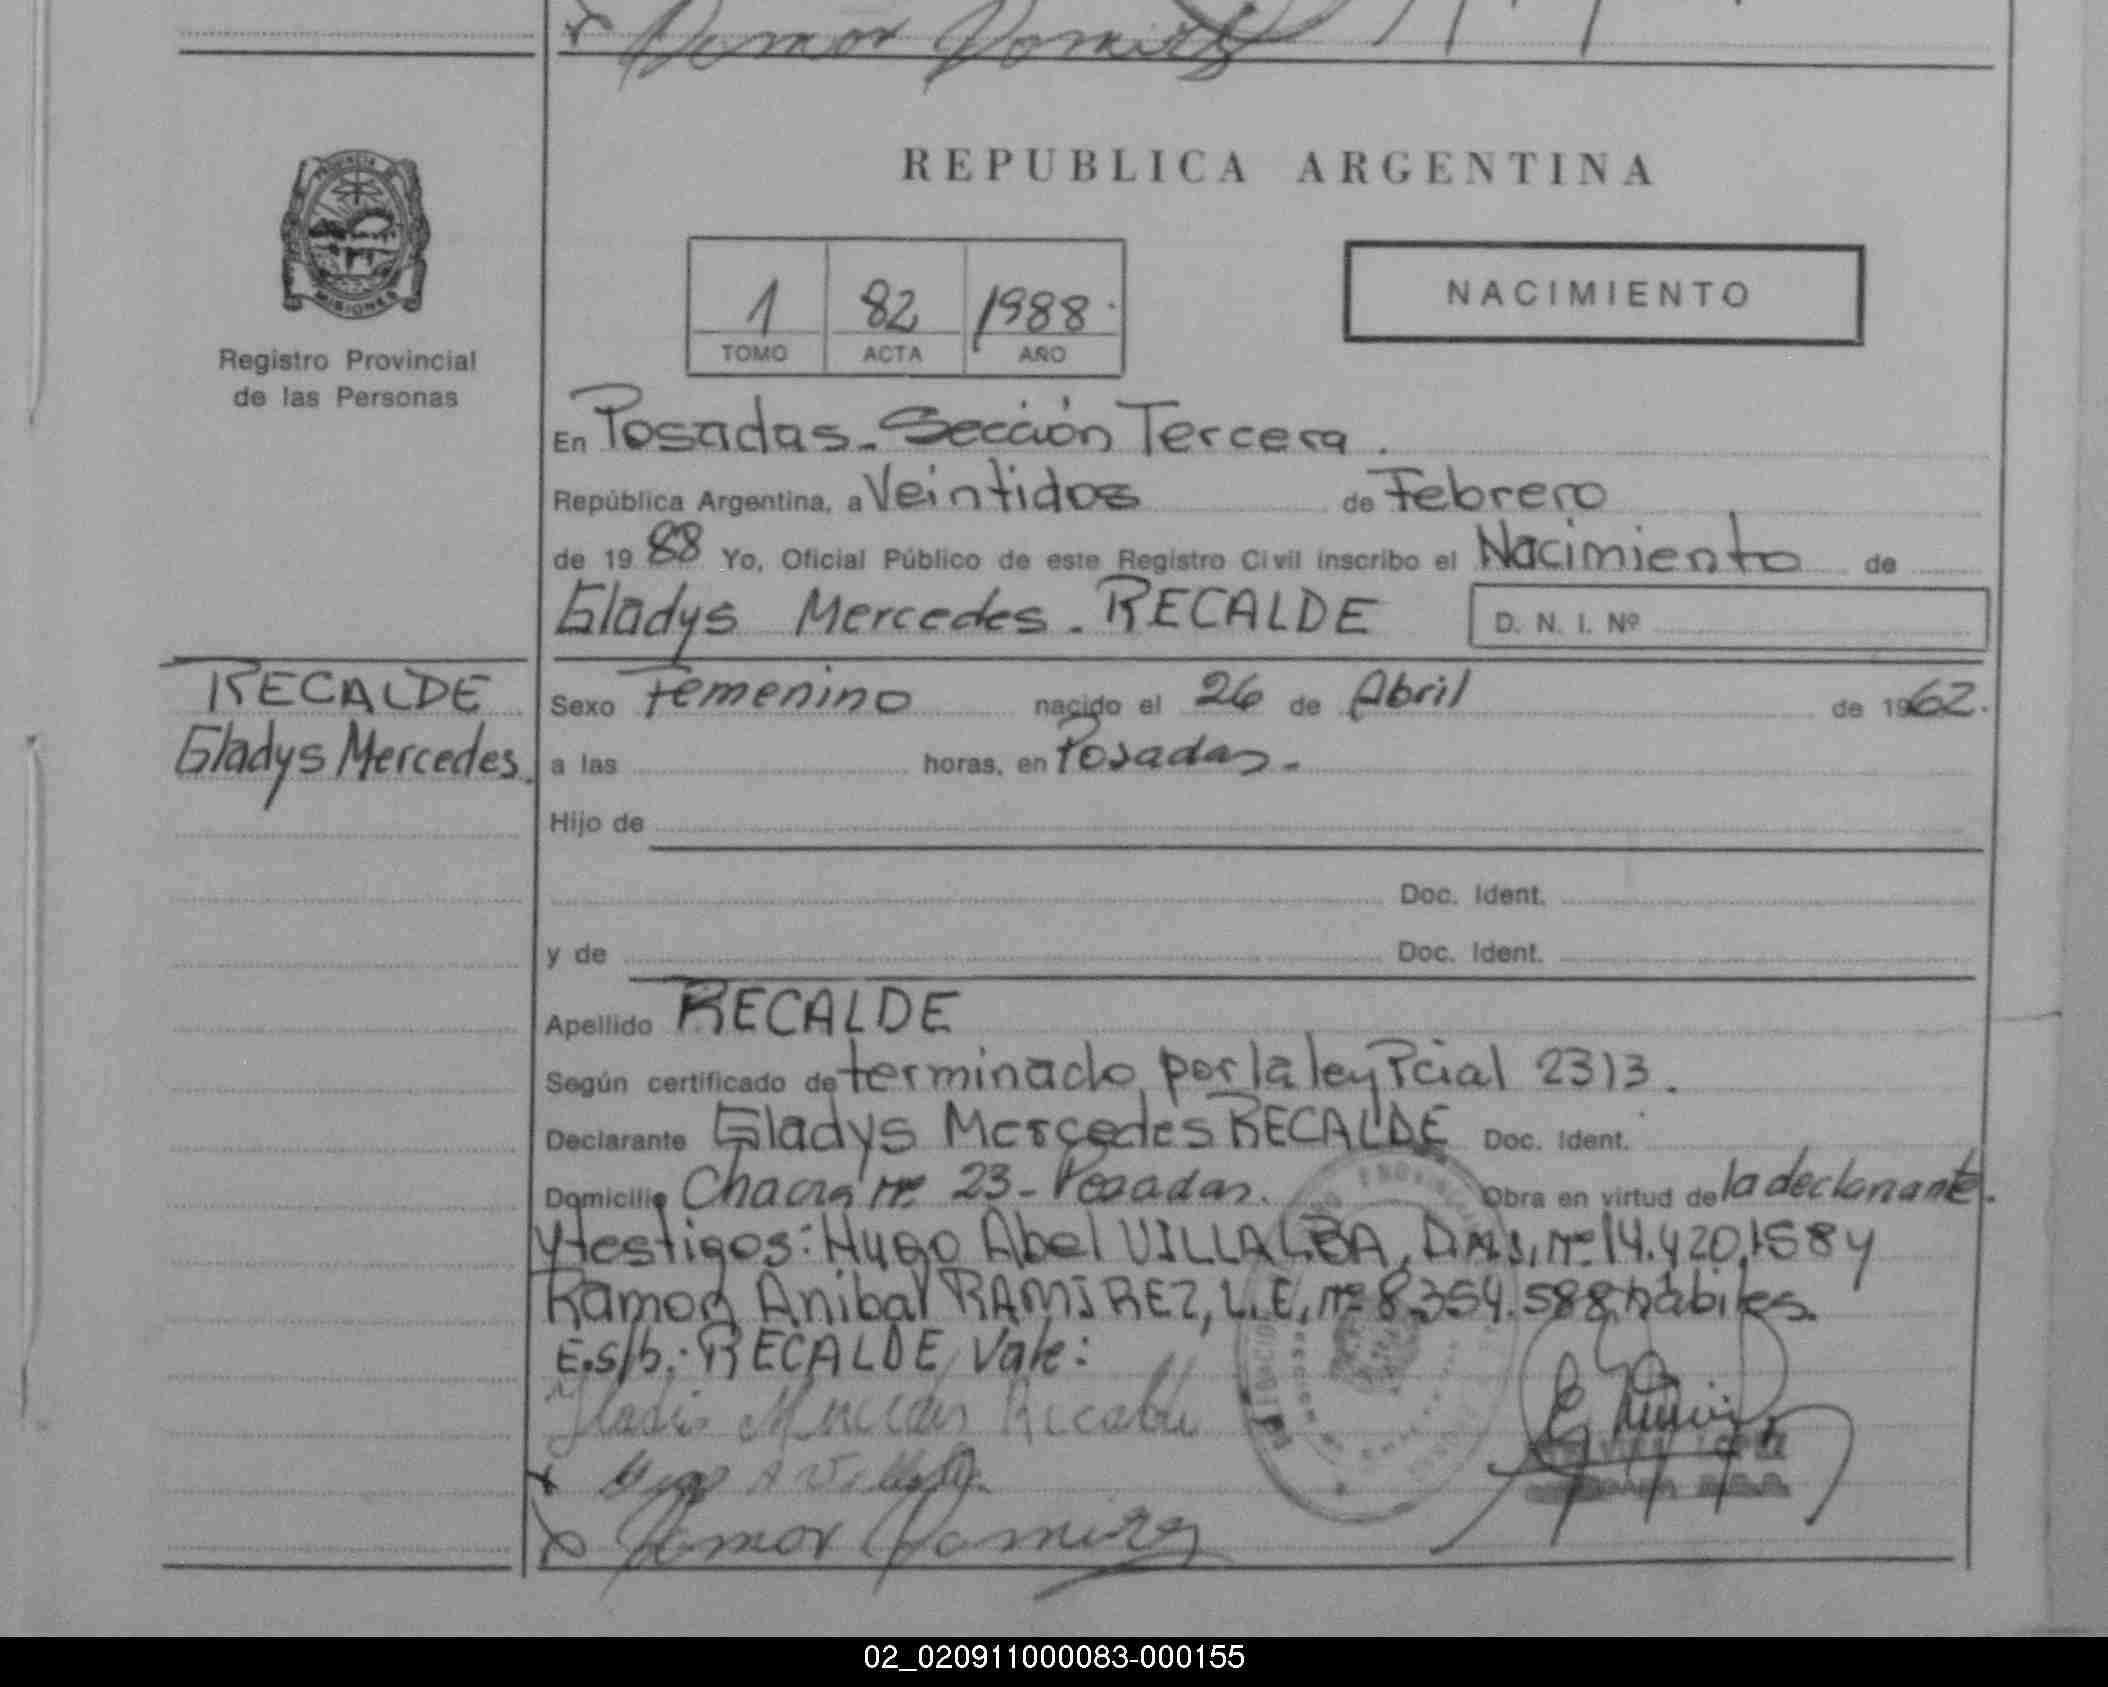 Ramon Ramirez
REPUBLICA ARGENTINA
PROVINCIA
MISIONES
Registro Provincial
de las Personas
1 82 1988.
TOMO ACTA AÑO
NACIMIENTO
En Posadas - Sección Tercera.
República Argentina, a Veintidos de Febrero
de 1988 Yo, Oficial Público de este Registro Civil inscribo el Nacimiento de
Gladys Mercedes - RECALDE D. N. I. Nº
RECALDE
Gladys Mercedes.
Sexo Femenino nacido el 26 de Abril de 1962.
a las horas, en Posadas -
Hijo de
Doc. Ident.
y de Doc. Ident.
Apellido RECALDE
Según certificado determinado por la ley Pcial 2313.
Declarante Gladys Mercedes RECALDE Doc. Ident.
Domicilio Chacra nº 23 - Posadas. Obra en virtud de la declarante.
y testigos: Hugo Abel VILLALBA, D.N.I. nº 14.420.158 y
Ramon Anibal RAMIREZ, L.E. nº 8.354.588 hábiles.
E.s/b.: RECALDE, Vale:
Gladis Mercedes Recalde
Ramon Ramirez
02_020911000083-000155